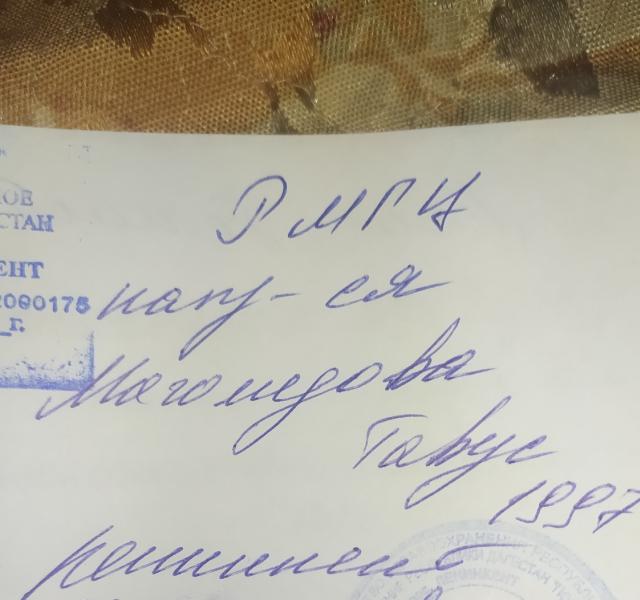 ОЕ
СТАН
ЕНТ
2090175
г.
РМГЦ
напр-ся
Магомедова
Тавус
1997
ОХРАНЕНИЯ РЕСПУБЛ
ДАГЕСТАН
ЛЕНИНКЕНТ